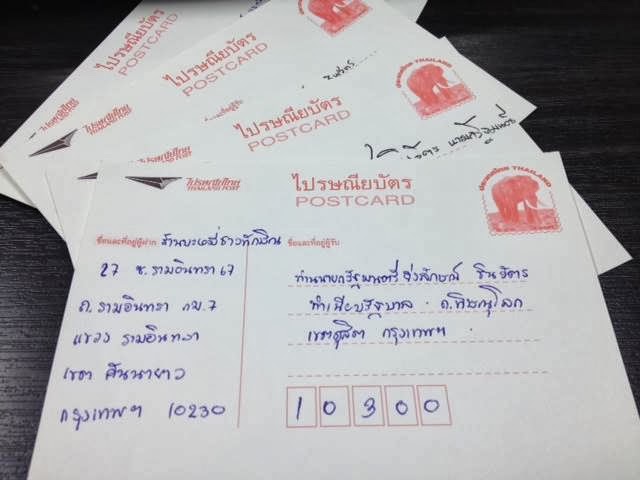 ไปรษณียบัตร
POSTCARD
ไปรษณีย์ไทย
THAILAND POST
ไปรษณียบัตร
POSTCARD
ประเทศไทย THAILAND
ไปรษณีย์ไทย
THAILAND POST
ไปรษณียบัตร
POSTCARD
ไปรษณีย์ไทย
THAILAND POST
ไปรษณียบัตร
POSTCARD
ประเทศไทย THAILAND
ชื่อและที่อยู่ผู้ฝาก
27 ซ.รามอินทรา 67
ถ.รามอินทรา กม.7
แขวง รามอินทรา
เขต คันนายาว
กรุงเทพฯ 10230
ชื่อและที่อยู่ผู้รับ
ท่านนายกรัฐมนตรียิ่งลักษณ์ ชินวัตร
ทำเนียบรัฐบาล ถ.พิษณุโลก
เขตดุสิต กรุงเทพฯ
10300